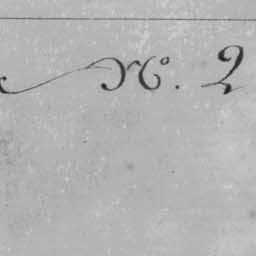 No. 2